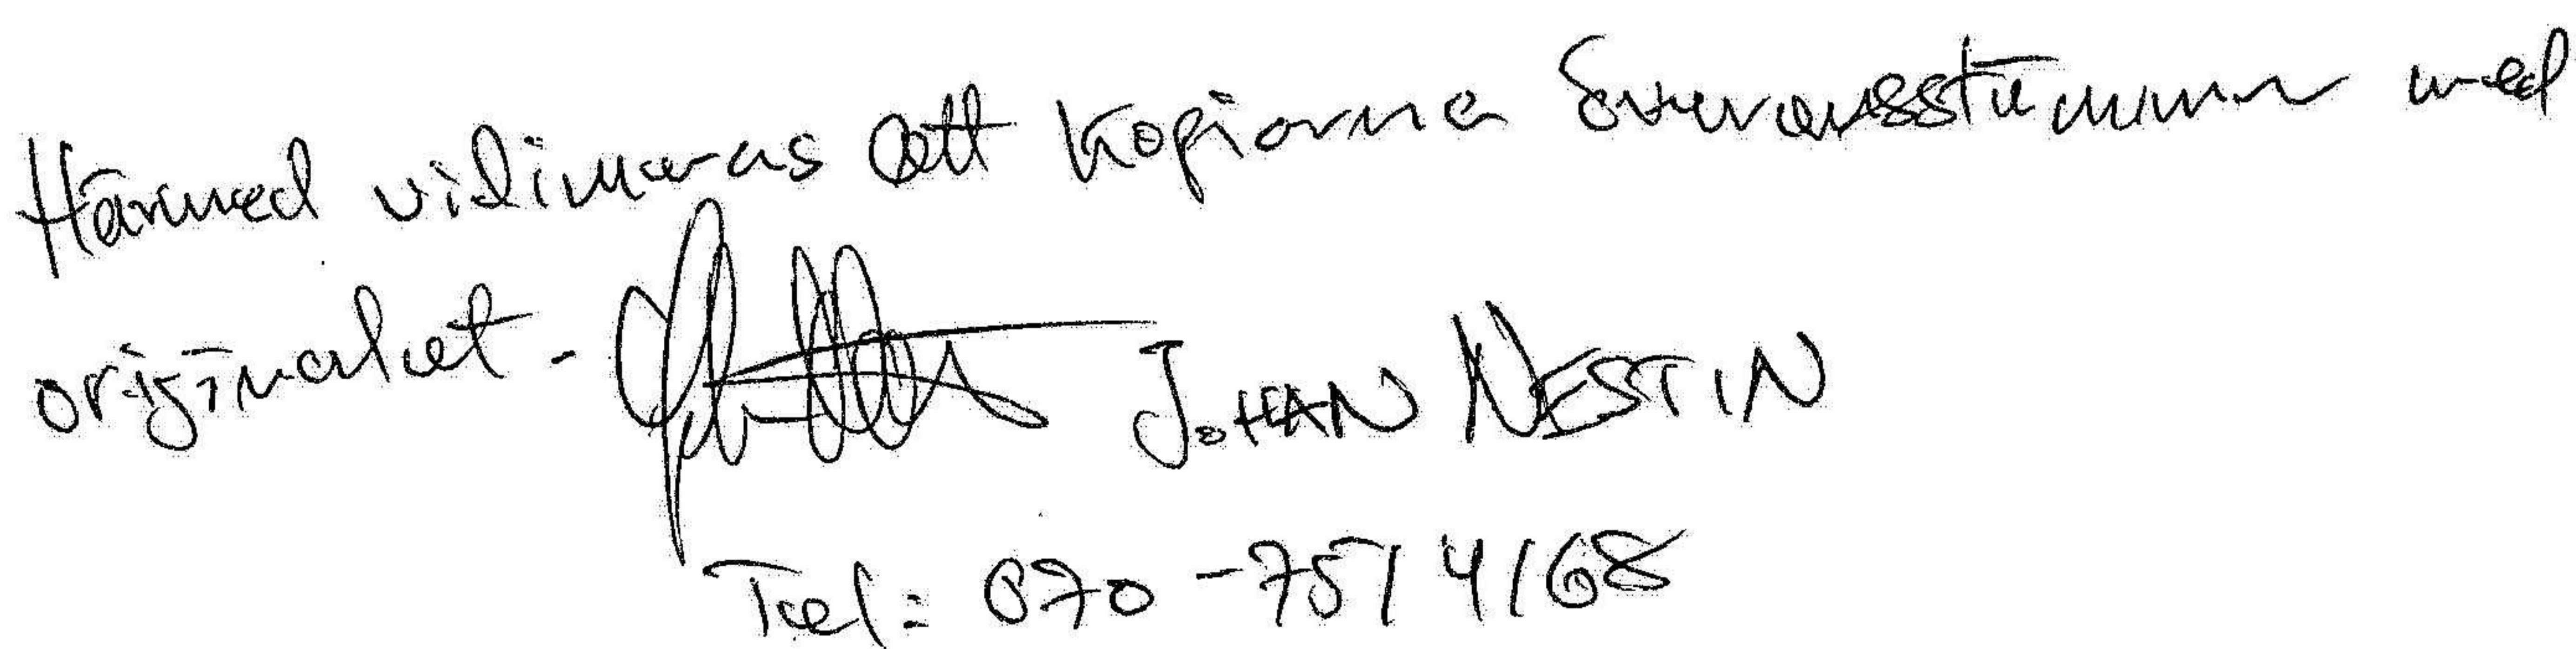 Härmed vidimeras att kopiorna överensstämmer med
originalet - JOHAN NESTIN
Tel: 070-751 4168